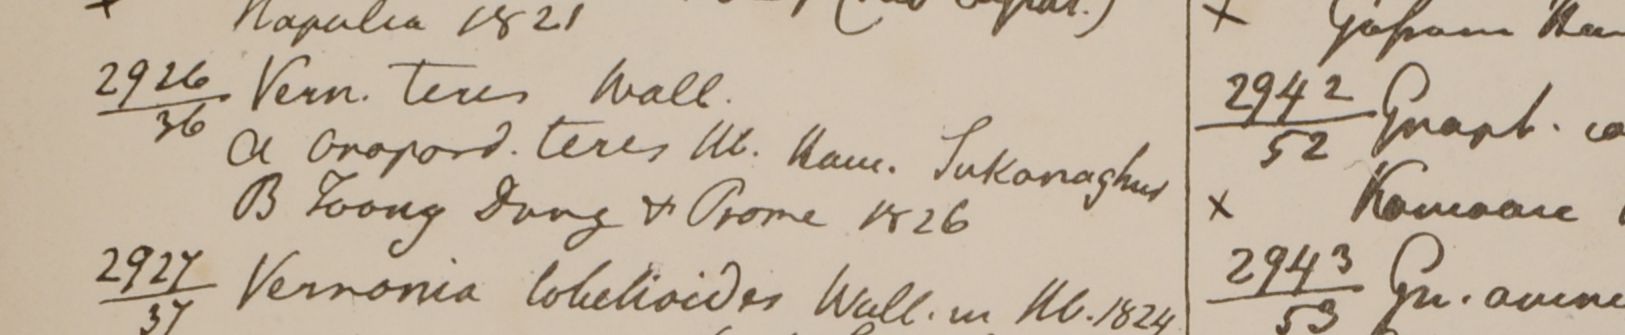 × Napalia 1821
2926 Vern. teres Wall.
36
a Onopord. teres Hb. Ham. Sukanaghur
B Toong Dong & Prome 1826
2927 Vernonia lobelioides Wall. in Hb. 1824
37
×
2942 Gnaph.
52
× Kamaon
2943 Gn.
53